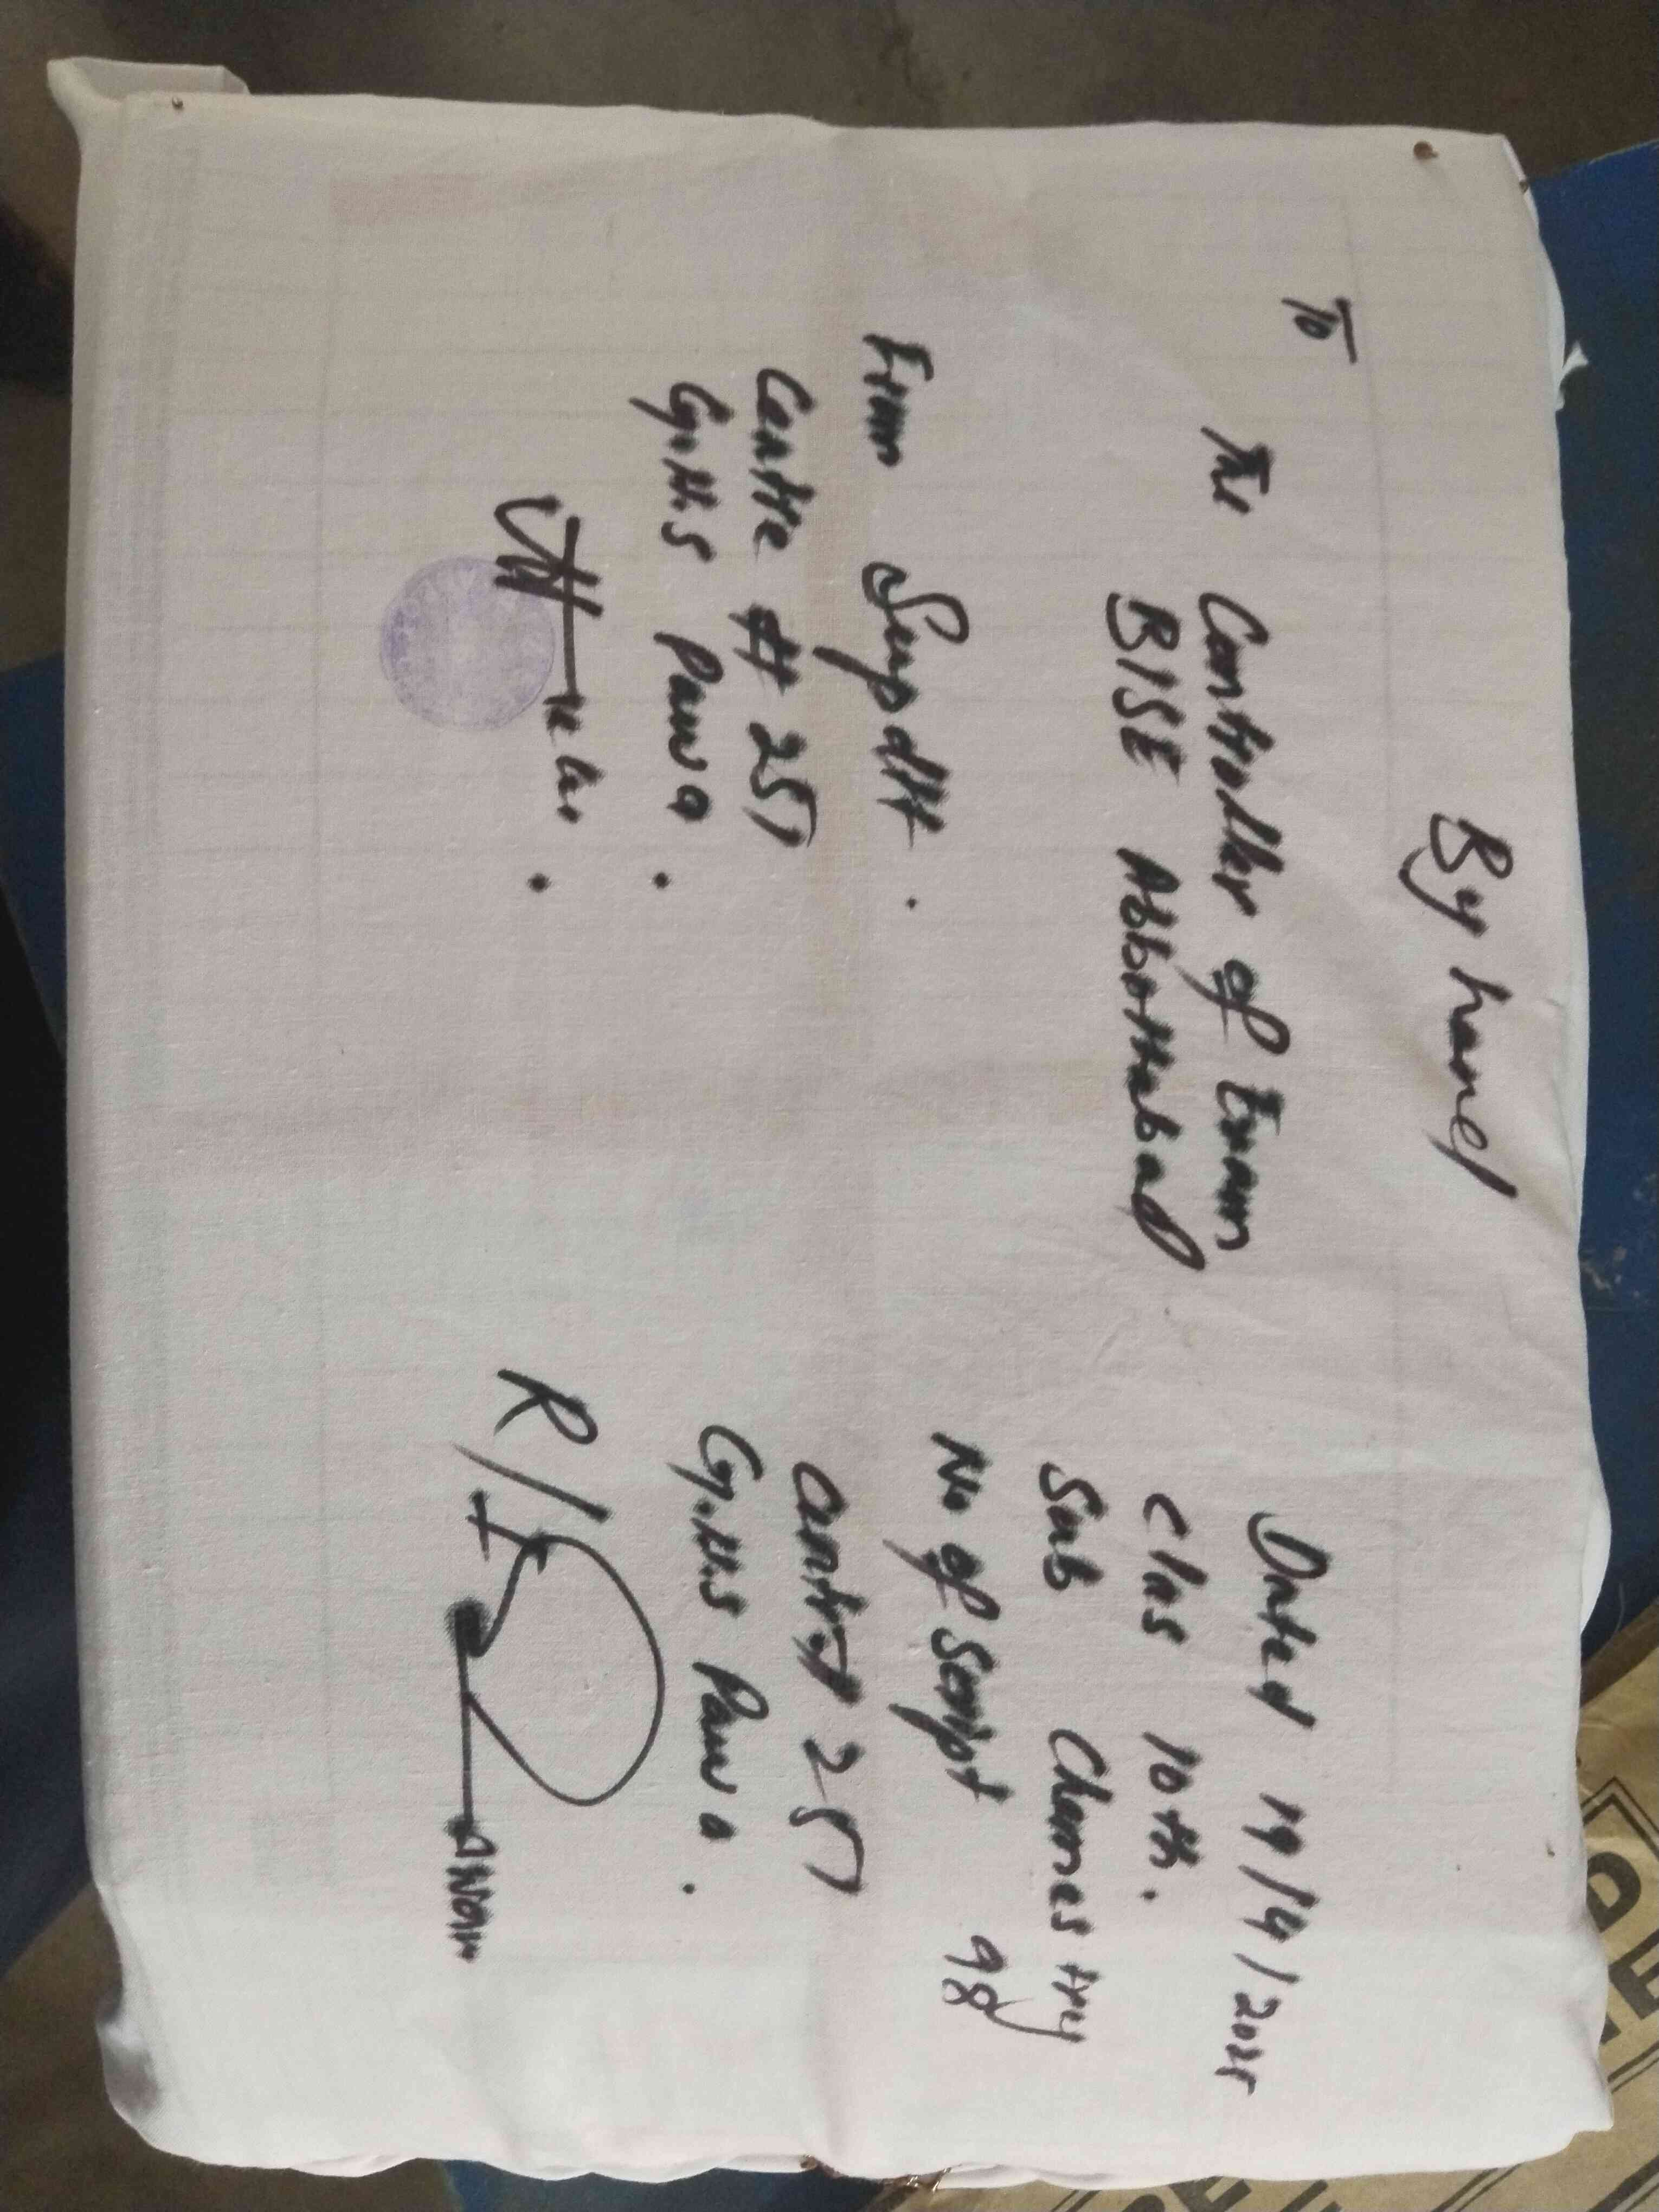 By hand
To
The Controller of Exam
BISE Abbottabad
From Supdtt.
Centre # 251
G.H.S Pawa.
Dated 19/4/2025
Clas 10th.
Sub Chemestry
No of Script 98
Centre# 251
G.H.S Pawa.
R/I
Awan